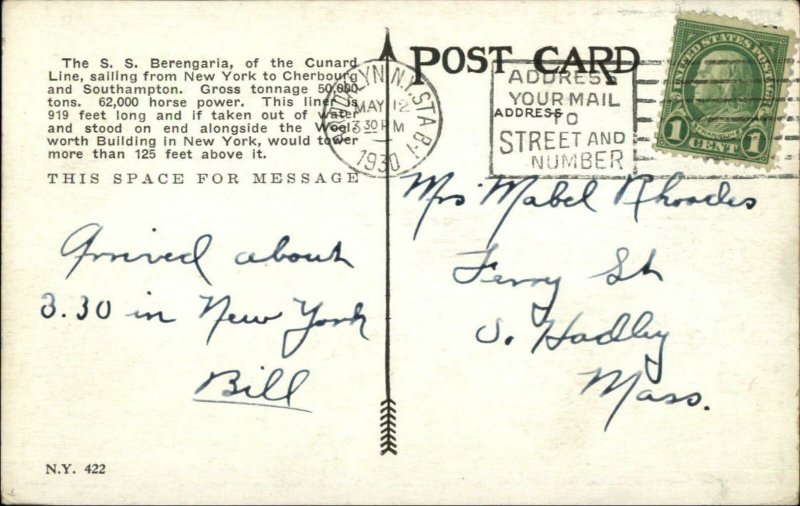 The S. S. Berengaria, of the Cunard
Line, sailing from New York to Cherbourg
and Southampton. Gross tonnage 50,000
tons. 62,000 horse power. This liner is
919 feet long and if taken out of water
and stood on end alongside the Wool-
worth Building in New York, would tower
more than 125 feet above it.
THIS SPACE FOR MESSAGE
Arrived about
3.30 in New York
Bill
N.Y. 422
POST CARD
BROOKLYN N.Y. STA. B-1
MAY 12
3 30 PM
1930
ADDRESS
YOUR MAIL
TO
STREET AND
NUMBER
ADDRESS
UNITED STATES POSTAGE
FRANKLIN
1 CENT 1
Mrs Mabel Rhoades
Ferry St
S. Hadley
Mass.